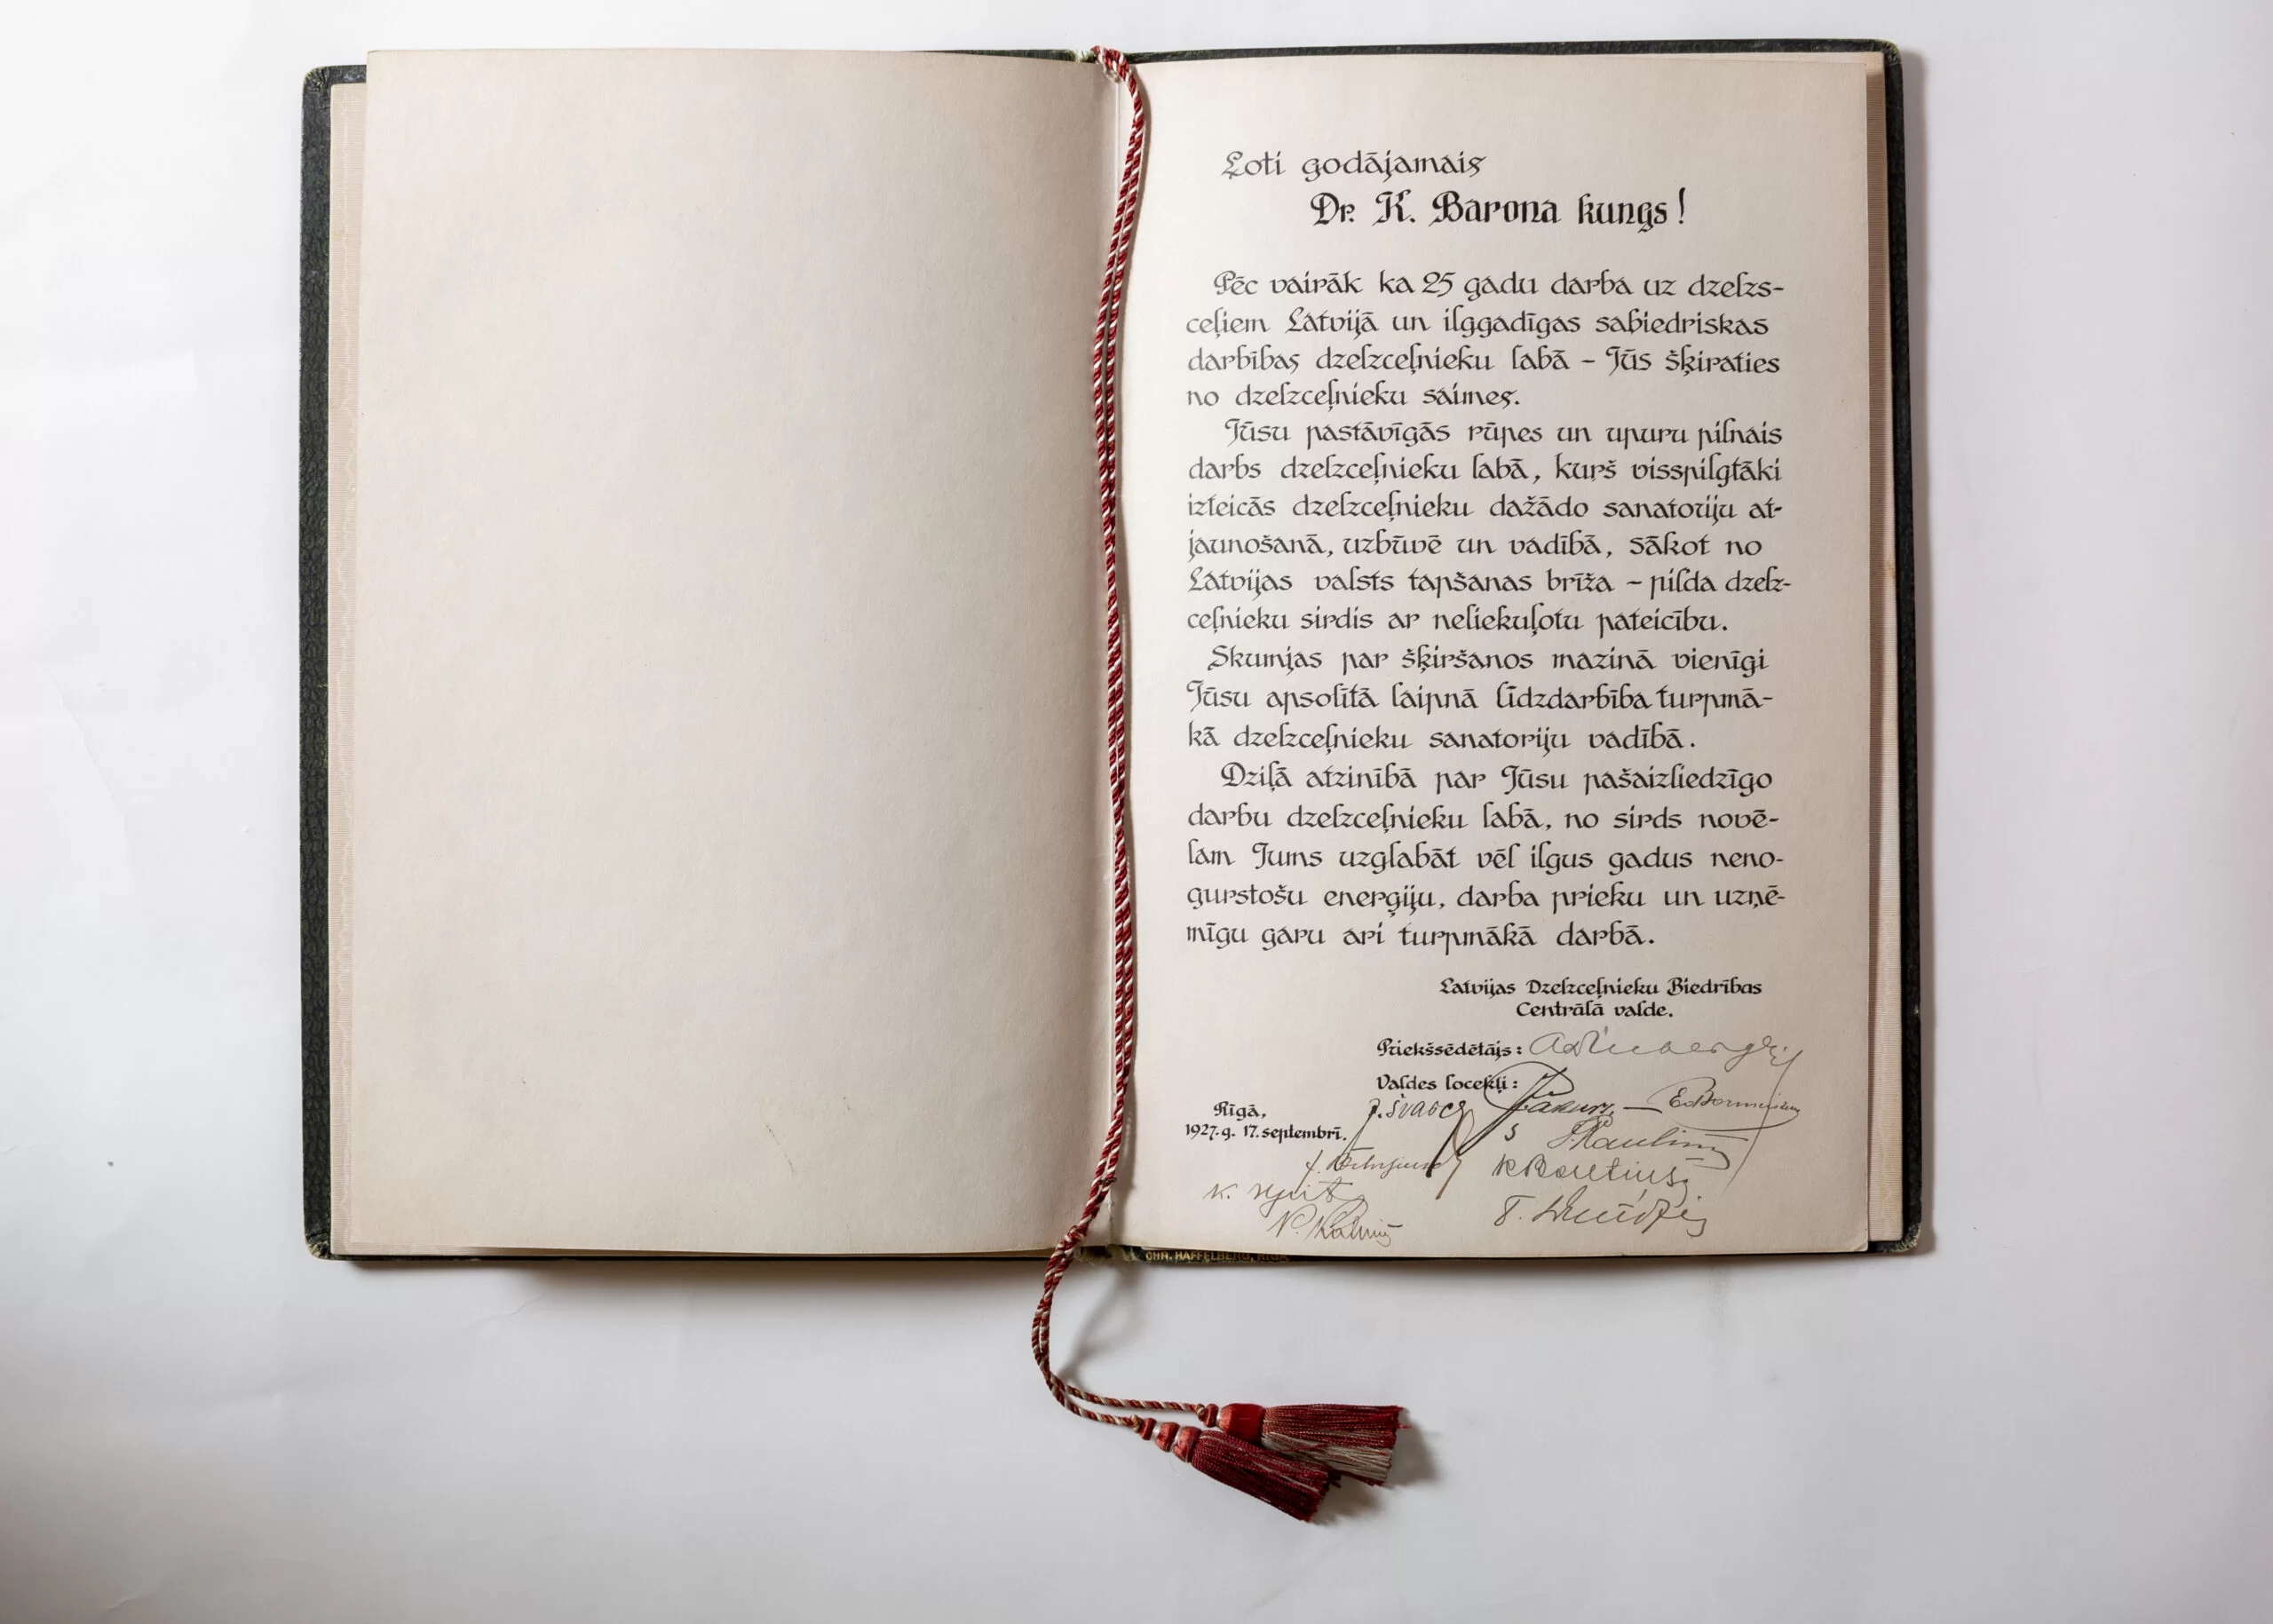 Ļoti godājamais
Dr. K. Barona kungs!
Pēc vairāk ka 25 gadu darba uz dzelzs-
ceļiem Latvijā un ilggadīgas sabiedriskas
darbības dzelzceļnieku labā – Jūs šķiraties
no dzelzceļnieku saimes.
Jūsu pastāvīgās rūpes un upuru pilnais
darbs dzelzceļnieku labā, kurš visspilgtāki
izteicās dzelzceļnieku dažādo sanatoriju at-
jaunošanā, uzbūvē un vadībā, sākot no
Latvijas valsts tapšanas brīža – pilda dzelz-
ceļnieku sirdis ar neliekuļotu pateicību.
Skumjas par šķiršanos mazinā vienīgi
Jūsu apsolītā laipnā līdzdarbība turpmā-
kā dzelzceļnieku sanatoriju vadībā.
Dziļā atzinībā par Jūsu pašaizliedzīgo
darbu dzelzceļnieku labā, no sirds novē-
lam Jums uzglabāt vēl ilgus gadus neno-
gurstošu enerģiju, darba prieku un uzņē-
mīgu garu arī turpmākā darbā.
Latvijas Dzelzceļnieku Biedrības
Centrālā valde.
Priekšsēdētājs:
Valdes locekļi:
Rīgā,
1927.g. 17. septembrī.
CHR. HAFFELBERG, RIGA